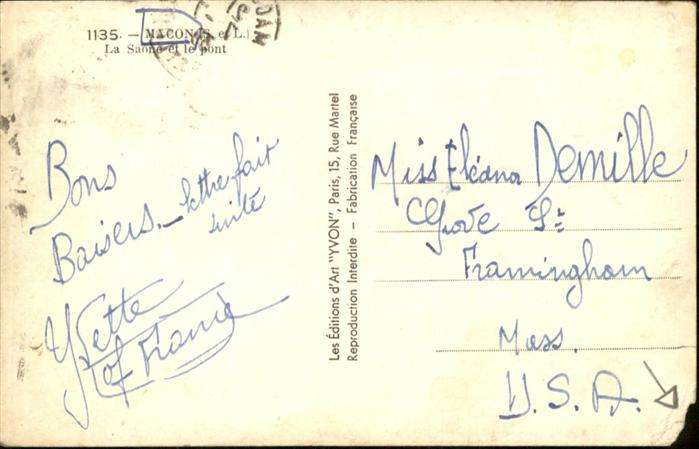 1135. — MACON (S. et L.)
La Saône et le pont
DAM
Bons
Baisers. — lettre fait
suite
Yvette
of France
Les Éditions d'Art "YVON", Paris, 15, Rue Martel
Reproduction Interdite — Fabrication Française
Miss Eléana Demille
Grove St
Framingham
Mass.
U.S.A.